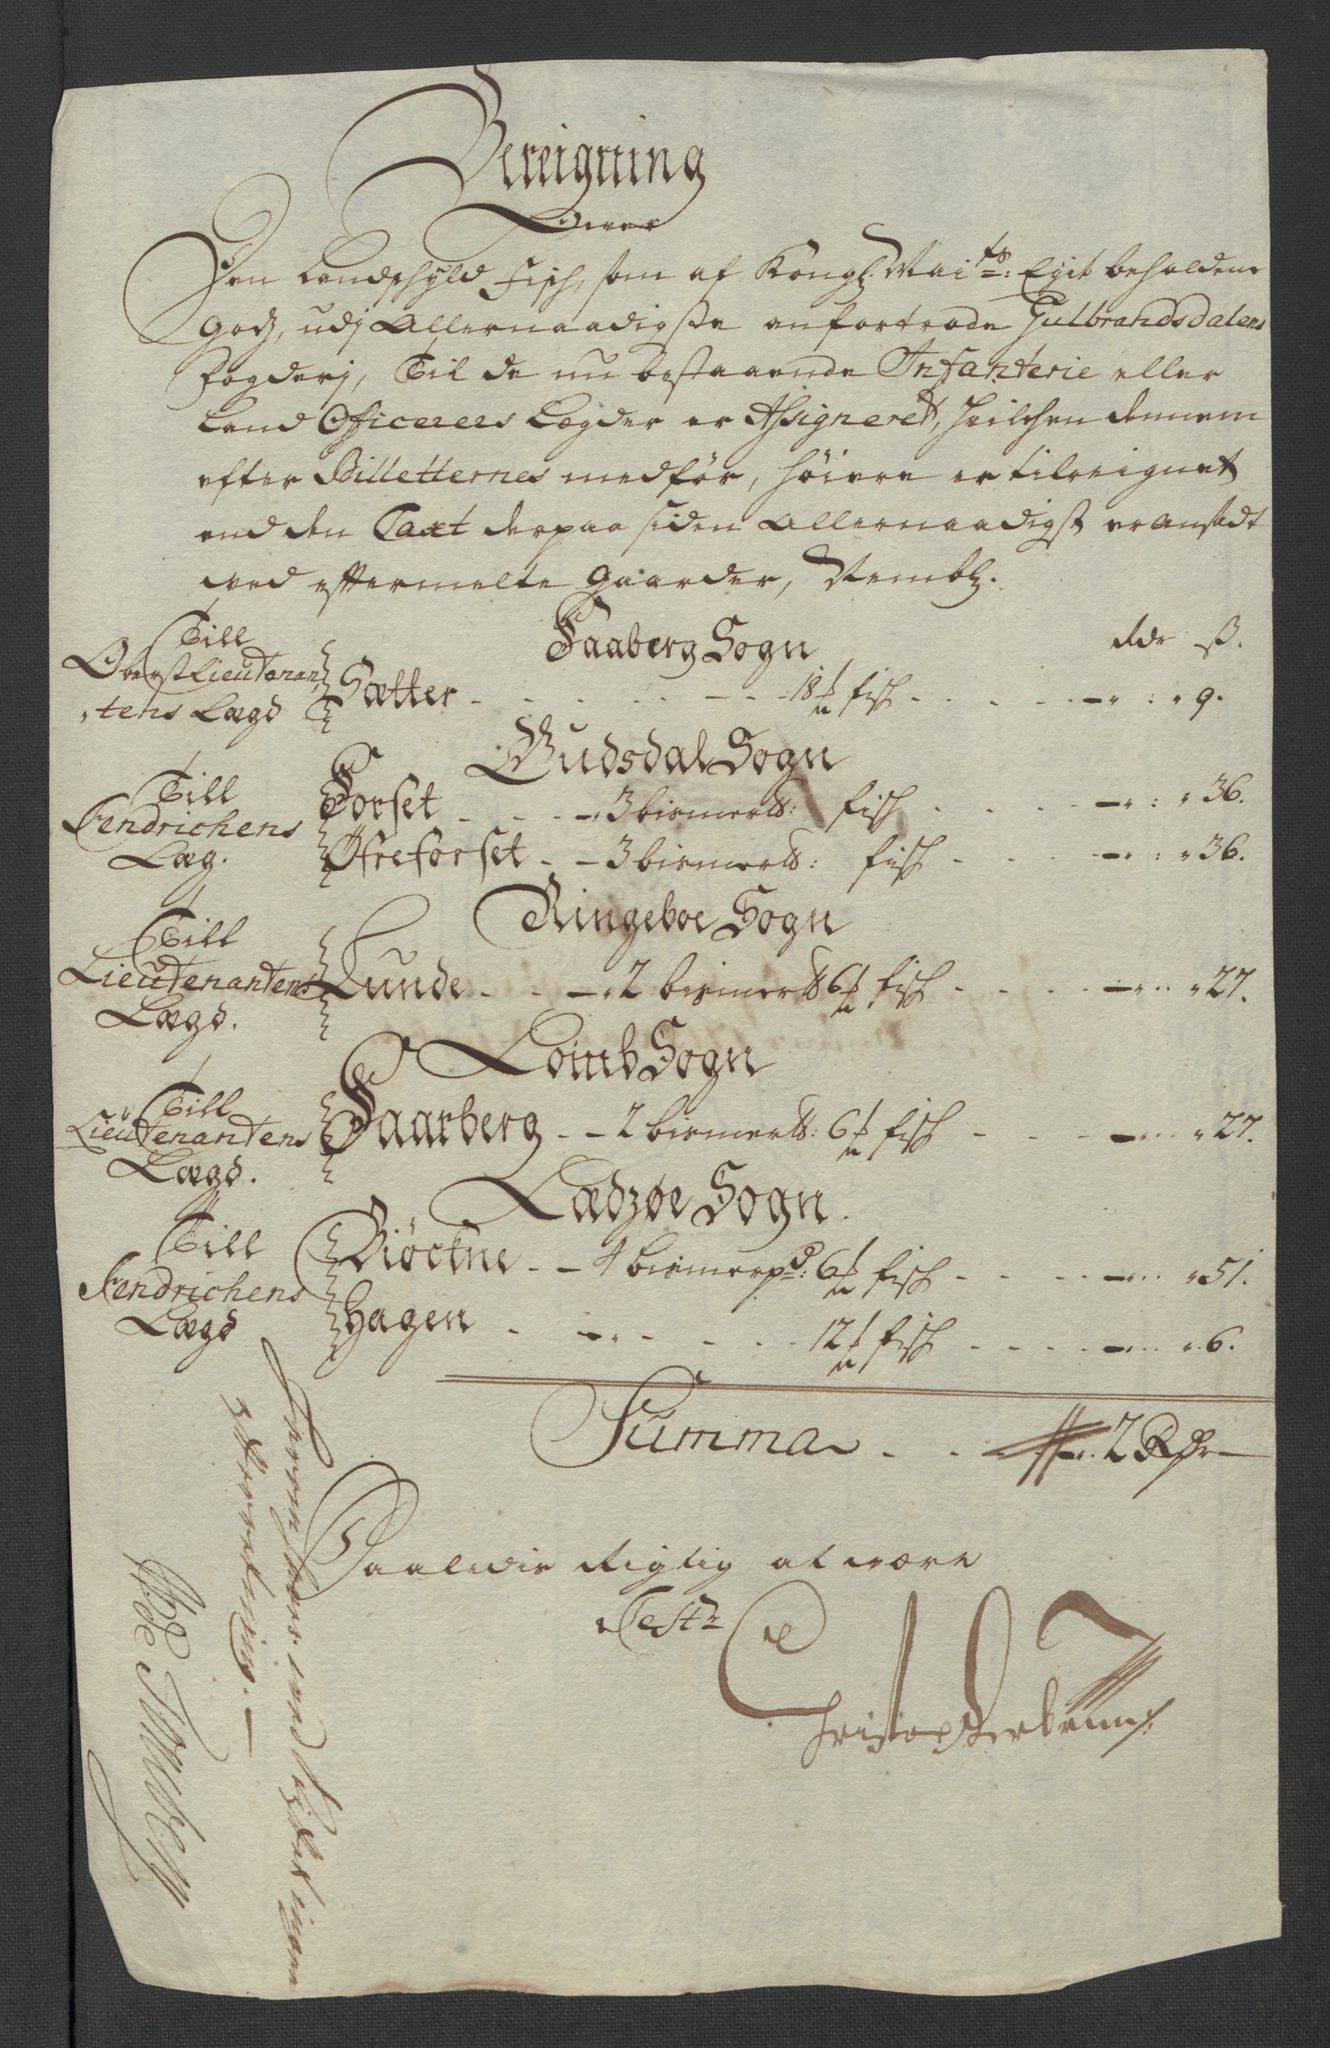 Bereigning
Over
Den Landschyld fisch, som af Kongl: Mai:ts: Eget beholdene
godz, udj Allernaadigste anfortrode Gulbrandsdalens
fogderj, Till de nu bestaaende Infanterie eller
Land Officerers Lægder er Assigneret, hvilchen dennem
efter Billetternes medfør, höiere er tilreignet
end den Taxt derpaa siden Allernaadigst er Ansadt
ved eftermelte gaarder, Nembl.
Faaberg Sogn
Rdr ß.
Till
Oberst Lieutenan
tens Lægd
Sætter - 18 ℔ fisch - 9.
Gudsdal Sogn
Till
Fendrichens
Læg.
Forset - 3 bismer℔: fisch - 36.
Øfreforset - 3 bismer℔: fisch - 36.
Ringeboe Sogn
Till
Lieutenantens
Lægd.
Lunde - 2 bismer℔ 6 ℔ fisch - 27.
Lomb Sogn
Till
Lieütenantens
Lægd.
Faarberg - 2 bismer℔: 6 ℔ fisch - 27.
Ladzøe Sogn.
Till
Fendrichens
Lægd
Giöctne - 4 bismerpd: 6 ℔ fisch - 51.
Hagen - 12 ℔ fisch - 6.
Summa - 2 Rdr
Saaledis Rigtig at være
Test: